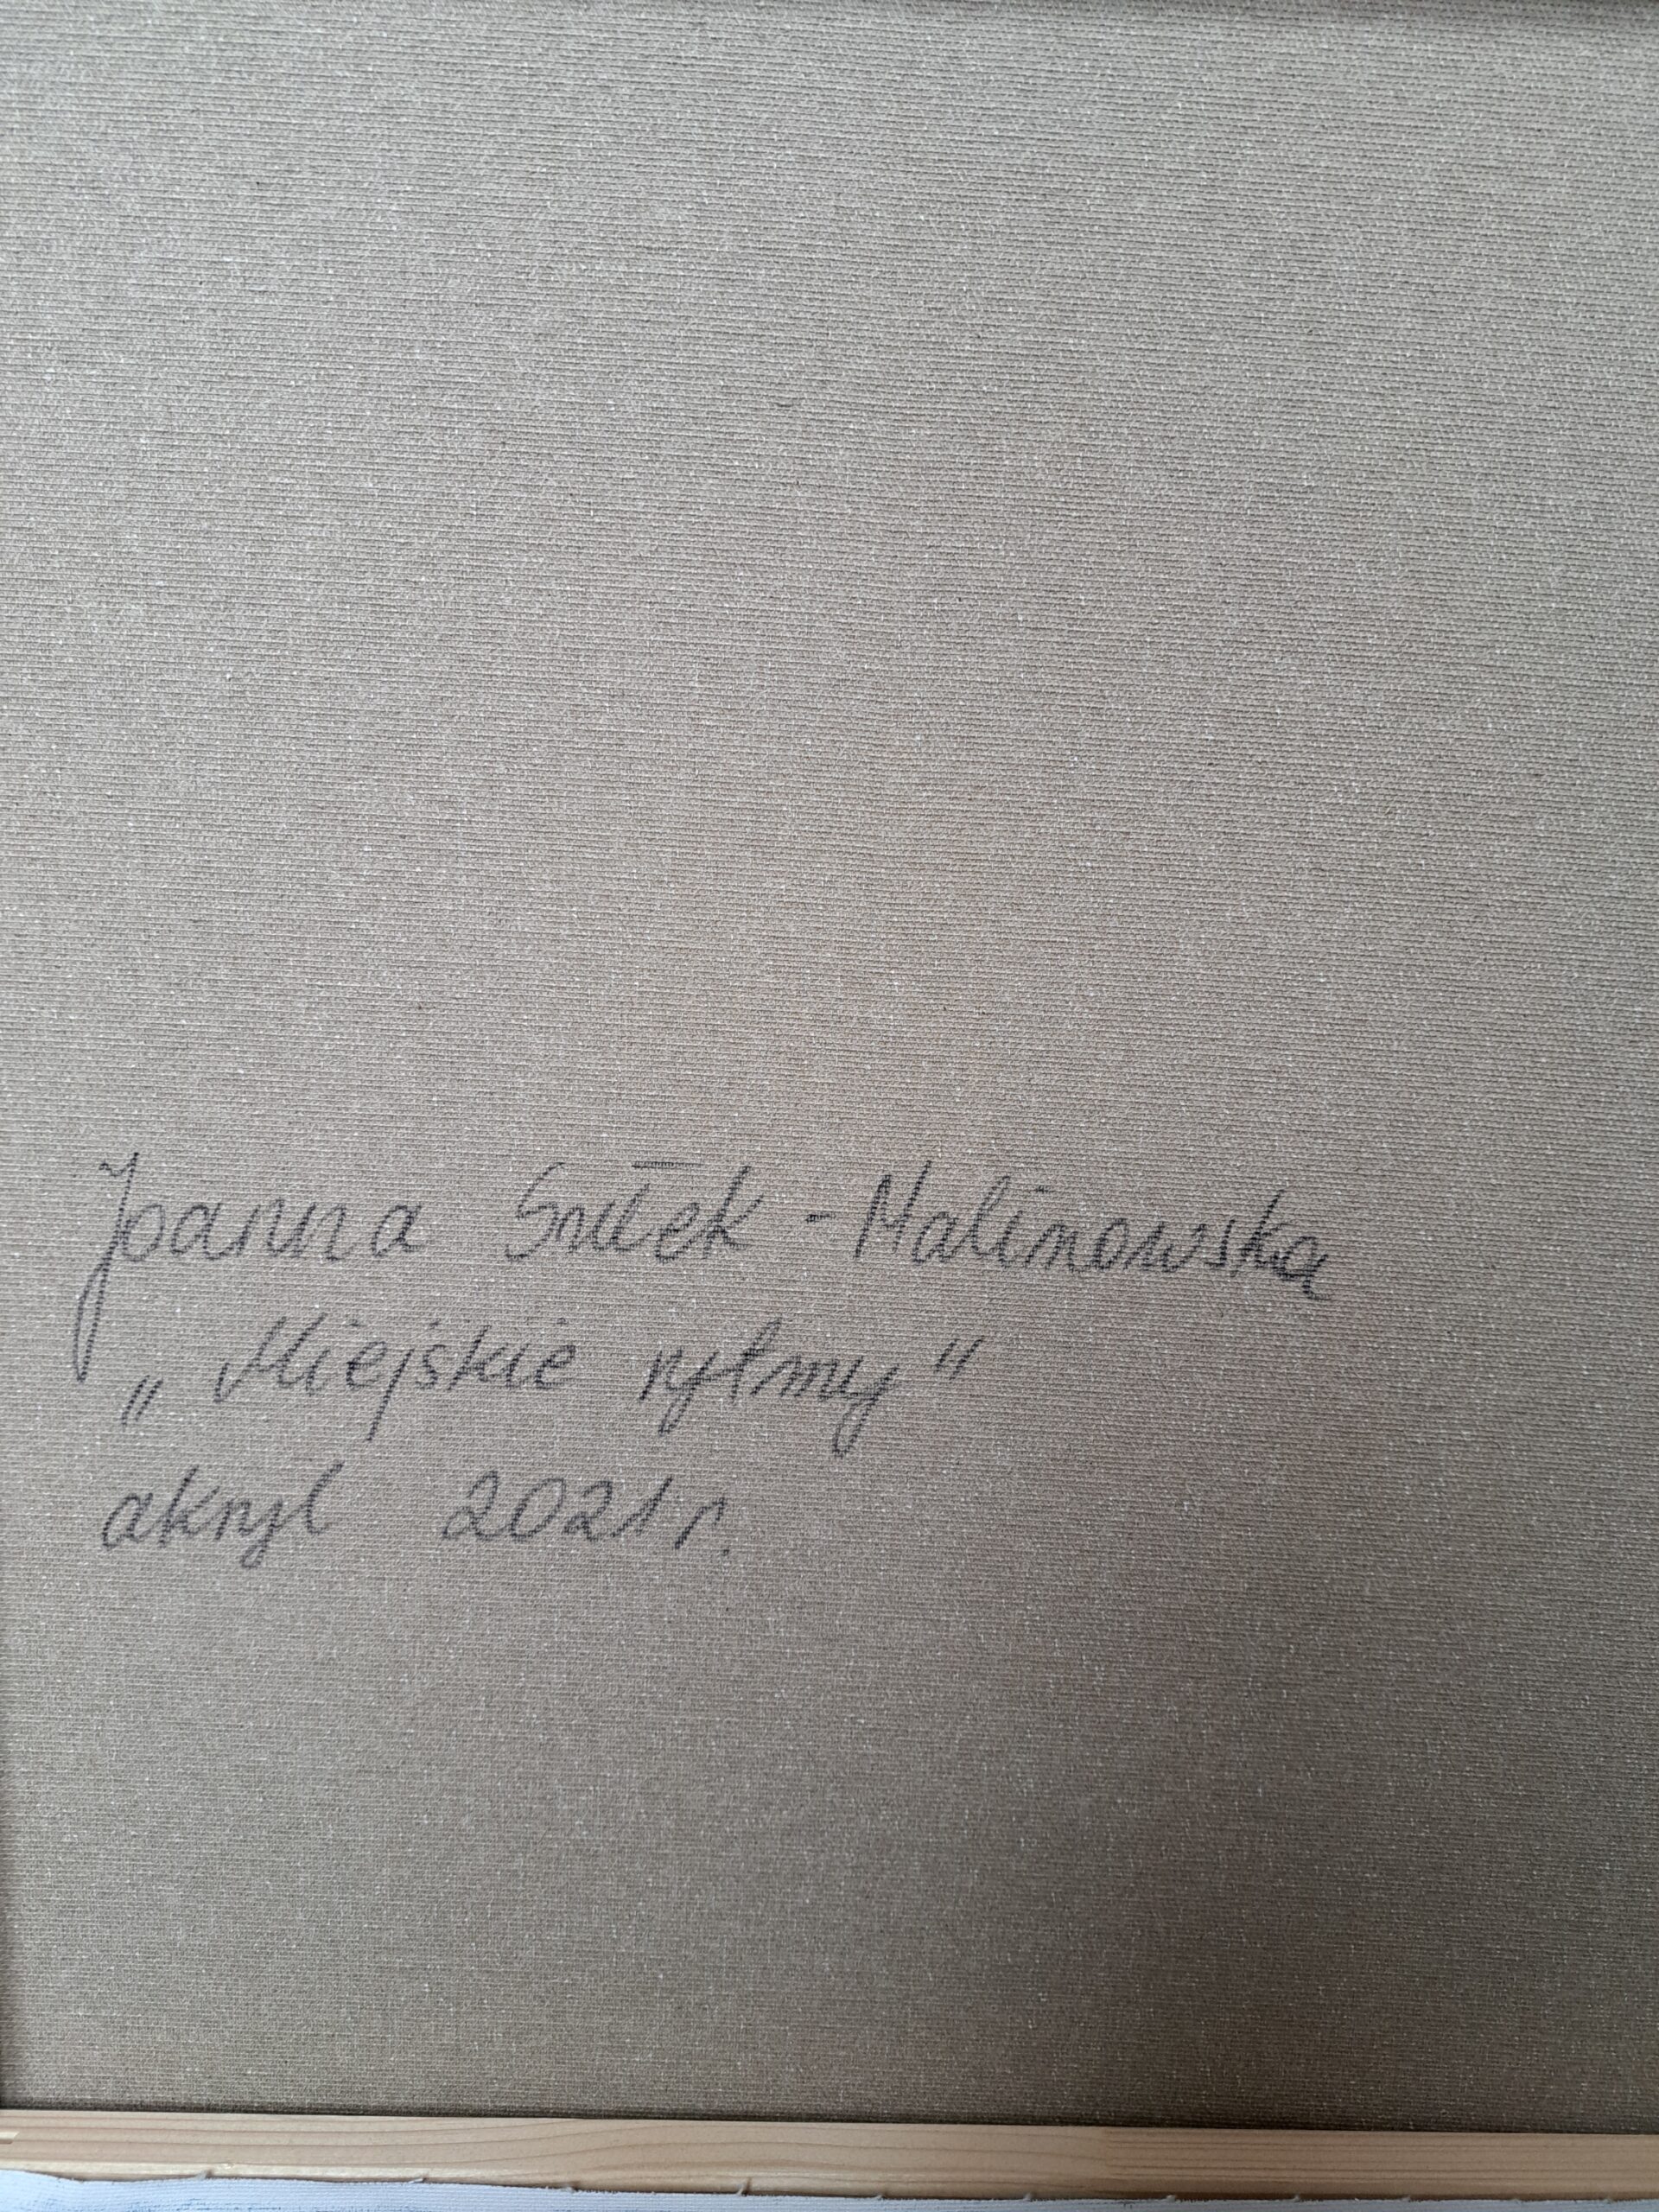 Joanna Smítek - Malinowska
„Miejskie rytmy"
akryl 2021 r.